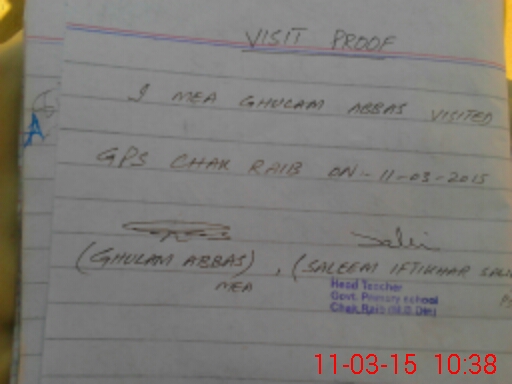 VISIT PROOF
I MEA GHULAM ABBAS VISITED
GPS CHAK RAIB ON - 11-03-2015
(GHULAM ABBAS), (SALEEM IFTIKHAR
MEA
Head Teacher
Govt. Primary school
Chak Raib (M.B.Din)
11-03-15 10:38